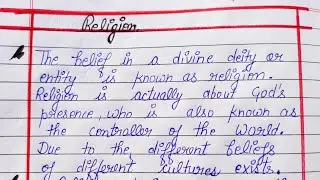 Religion
The belief in a divine deity or
entity is known as religion.
Religion is actually about God's
presence, who is also known as
the controller of the world.
Due to the different beliefs
of different cultures exists.